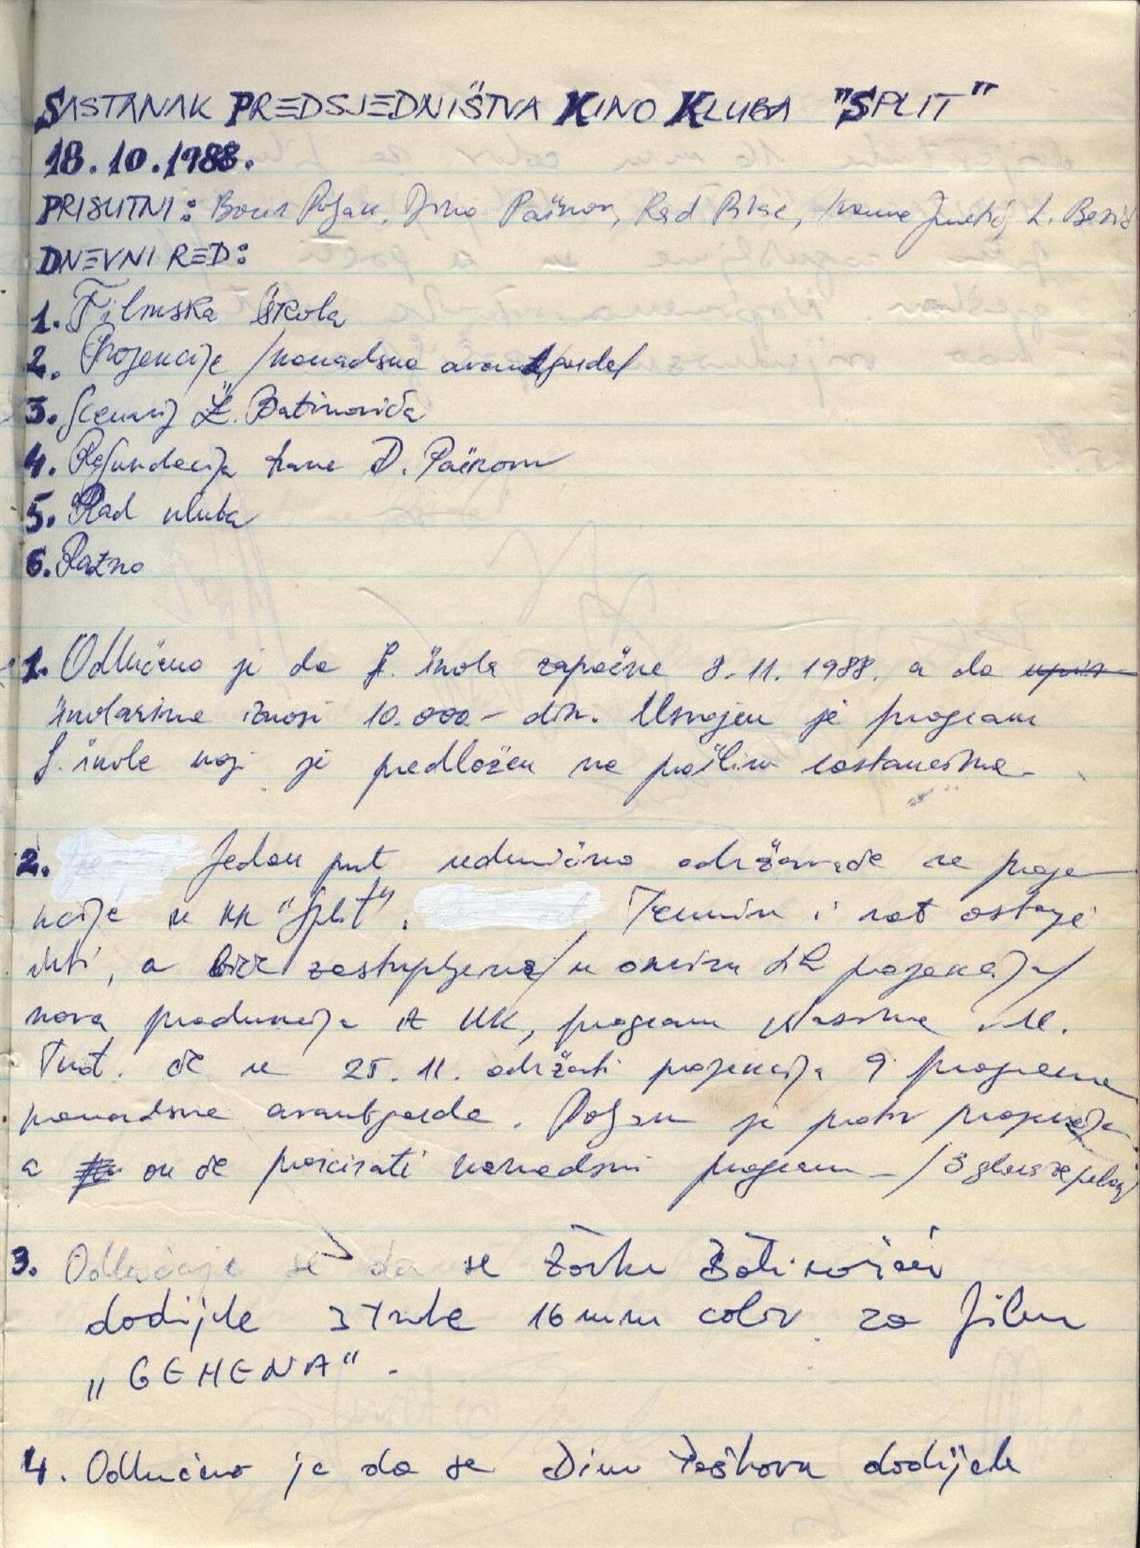 SASTANAK PREDSJEDNIŠTVA KINO KLUBA "SPLIT"
18.10.1988.
PRISUTNI: Boris Poljak, Dino Paškov, Rad Ivana L. Bezić
DNEVNI RED:
1. Filmska škola
2. Projekcije /kanadska avantgarda/
3. Scenarij Ž. Batinovića
4. Refundacija D. Paškovu
5. Rad kluba
6. Razno
1. Odlučeno je da f. škola započne 8.11.1988. a da upis
školarina iznosi 10.000- din. Usvojen je program
f. škole koji je predložen na prošlim sastancima.
2. Jedan put sedmično održavaće se proje
kcije u KK "Split". Termin i sat ostaje
isti, a biće zastupljena /u okviru projekcija/
nova produkcija iz KK, program
će se 25.11. održati projekcija 9 programa
kanadske avantgarde. Poljak je protiv projekcija
a on će kanadski program /3 glasa
3. Odlučuje se da se Žarku Batinoviću
dodijele 3 role 16 mm color za film
„GEHENA“.
4. Odlučeno je da se Dinu Paškovu dodijele